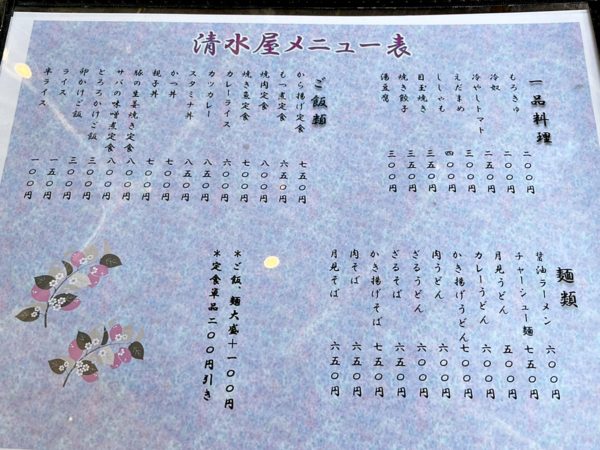 清水屋メニュー表
一品料理
もろきゅ 二〇〇円
冷奴 二五〇円
冷やしトマト
えだまめ 四〇〇円
ししゃも 三五〇円
目玉焼き 三五〇円
焼き餃子 三〇〇円
湯豆腐
ご飯類
から揚げ定食 七五〇円
もつ煮定食 六五〇円
焼肉定食 七〇〇円
焼き魚定食 七〇〇円
カレーライス 六〇〇円
カツカレー 八五〇円
スタミナ丼 八五〇円
かつ丼 七〇〇円
親子丼 七〇〇円
豚の生姜焼き定食 八〇〇円
サバの味噌煮定食 八〇〇円
とろろかけご飯 三〇〇円
卵かけご飯 三〇〇円
ライス 一五〇円
半ライス 一〇〇円
麺類
醤油ラーメン 六〇〇円
チャーシュー麺 七五〇円
月見うどん 五〇〇円
カレーうどん 六〇〇円
かき揚げうどん 七〇〇円
肉うどん 六〇〇円
ざるうどん 六〇〇円
ざるそば 六〇〇円
かき揚げそば 七五〇円
肉そば 六五〇円
月見そば 六五〇円
＊ご飯、麺大盛＋一〇〇円
＊定食単品二〇〇円引き